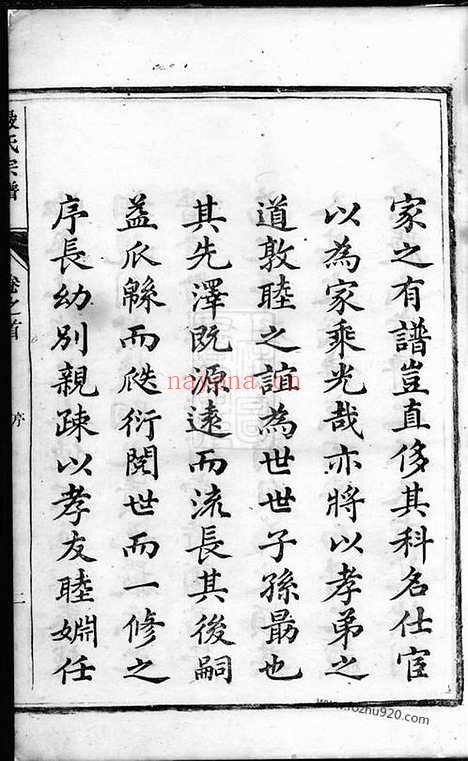 家之有譜豈直侈其科名仕宦
以為家乘光哉亦將以孝弟之
道敦睦之誼為世世子孫勗也
其先澤既源遠而流長其後嗣
益瓜緜而瓞衍閱世而一修之
序長幼別親疎以孝友睦婣任
氏宗譜
卷之首
序
二
nayona.cn
www.rozhu920.com